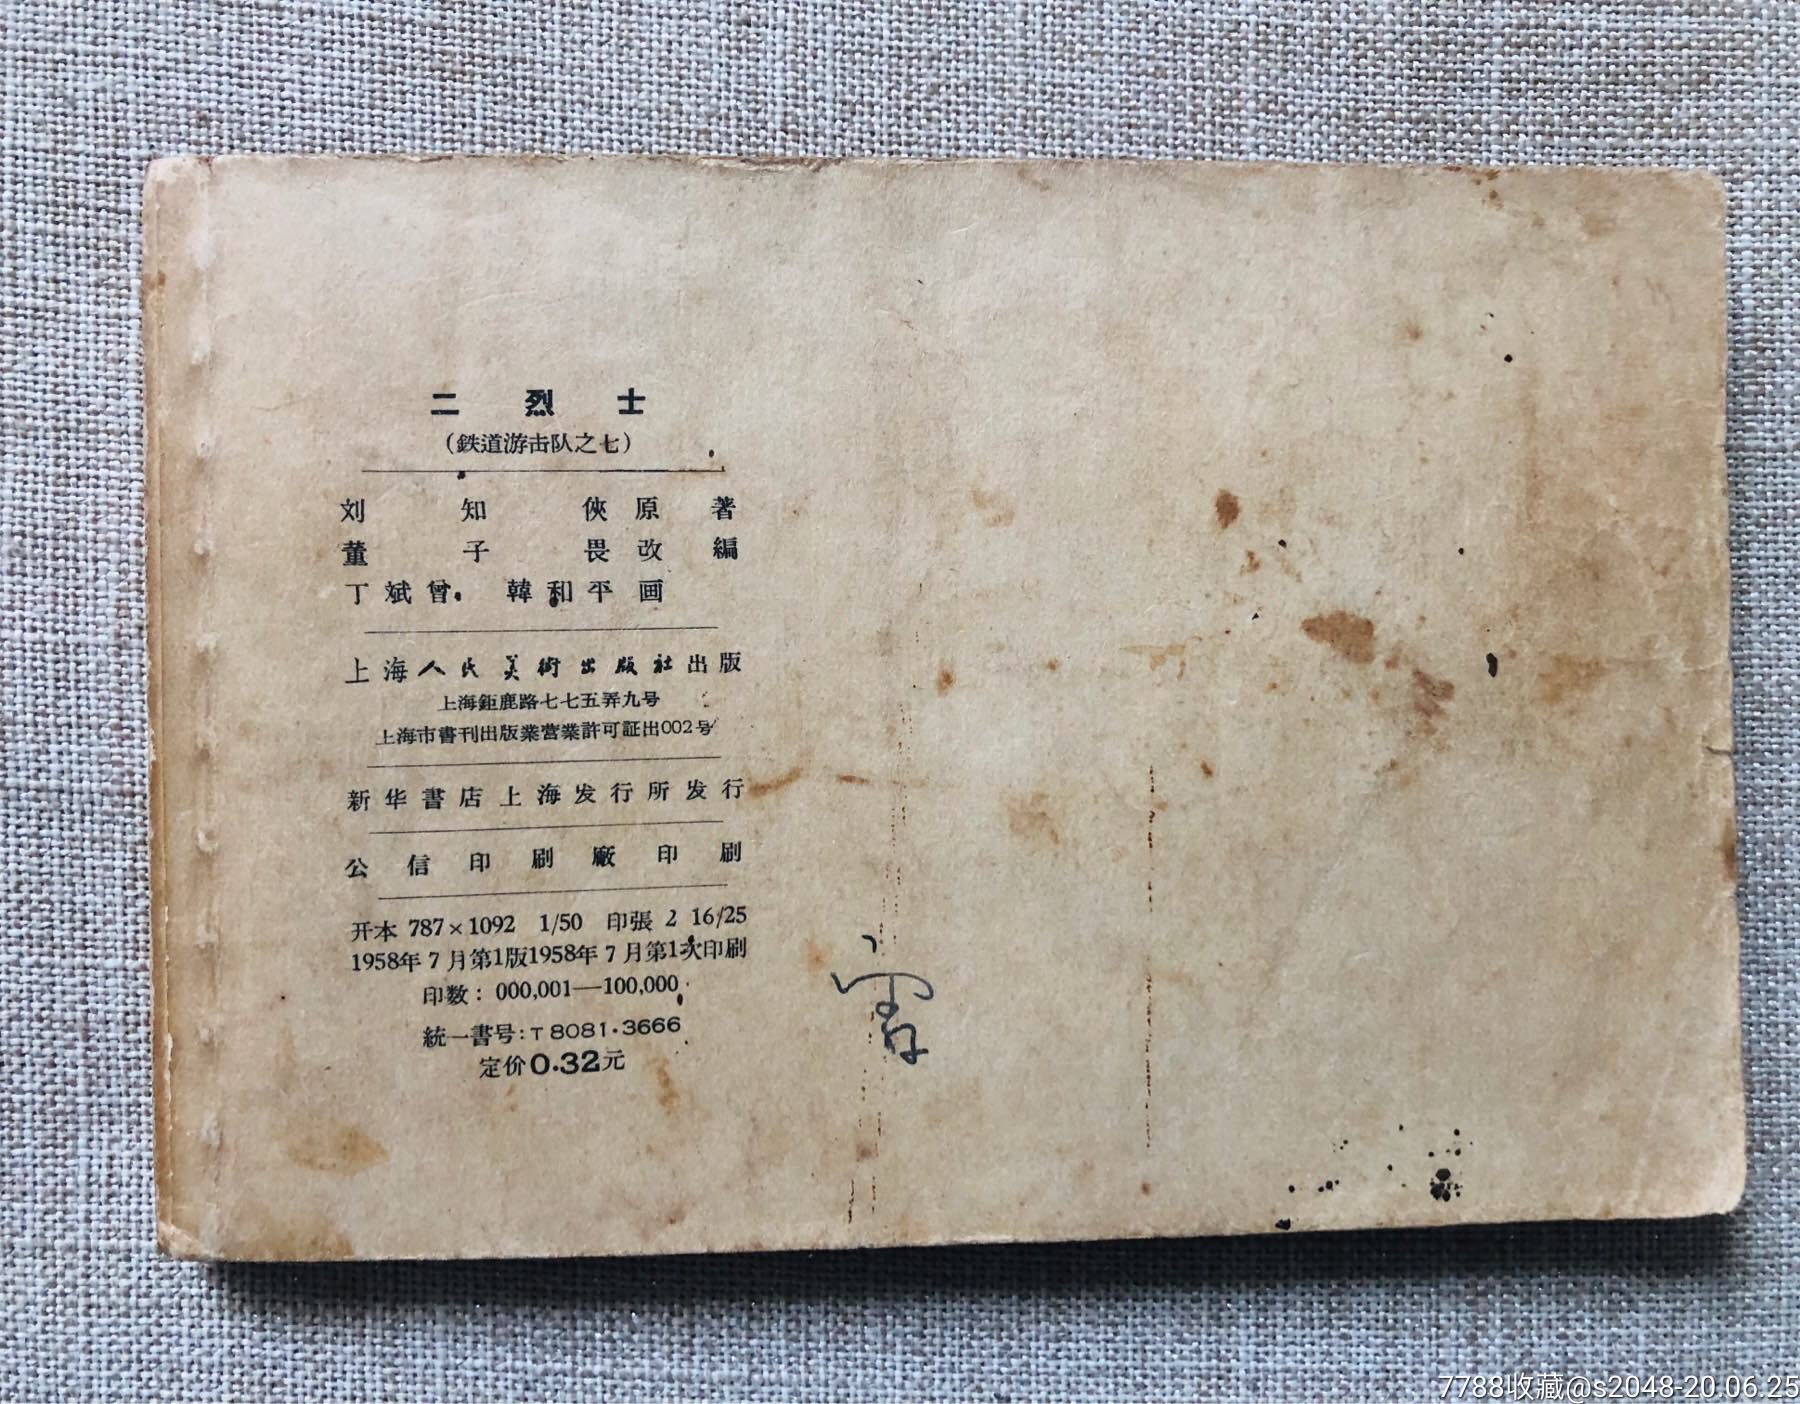 二烈士
（鉄道游击队之七）
刘知俠原著
董子畏改編
丁斌曾．韓和平画
上海人民美術出版社出版
上海鉅鹿路七七五弄九号
上海市書刊出版業营業許可証出002号
新华書店上海发行所发行
公信印刷廠印刷
开本 787×1092 1/50 印張 2 16/25
1958年7月第1版1958年7月第1次印刷
印数：000,001—100,000
統一書号：T8081·3666
定价0.32元
7788收藏@s2048-20.06.25